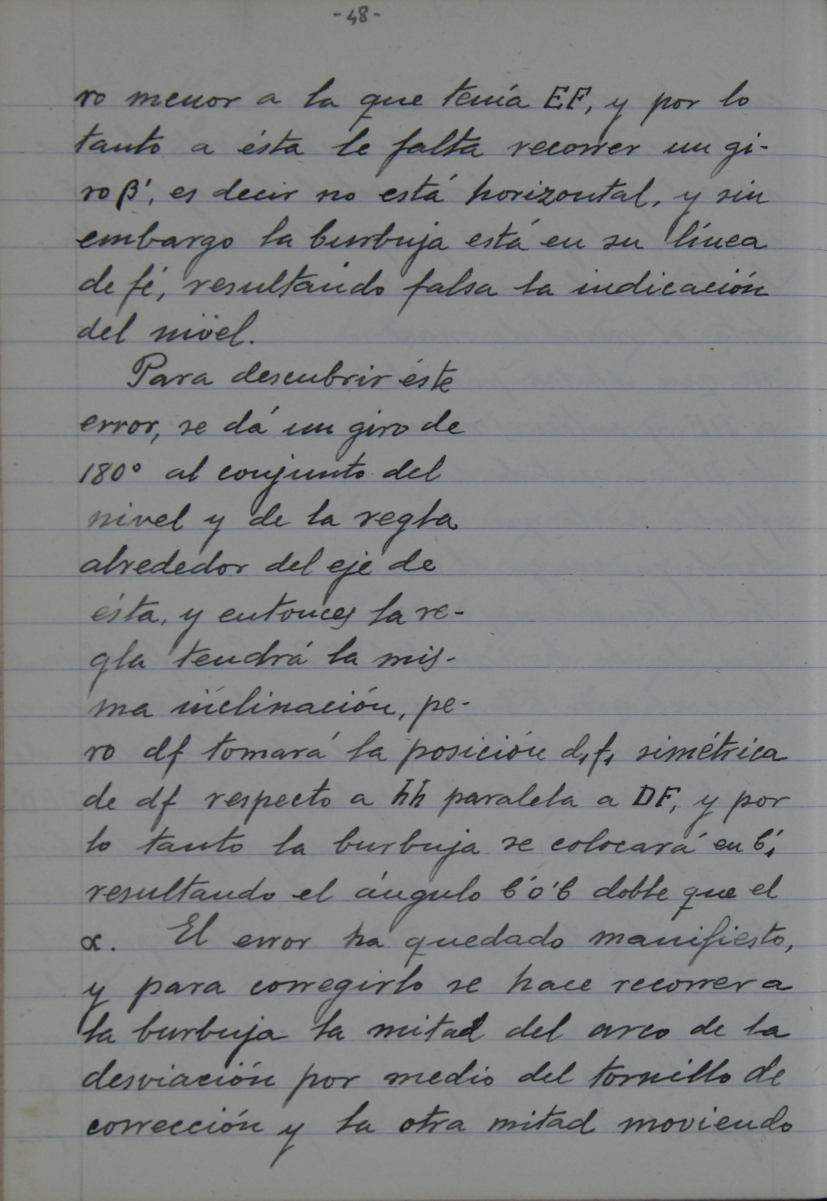 -48-
ro menor a la que tenía EF, y por lo
tanto a ésta le falta recorrer un gi-
ro β', es decir no está horizontal, y sin
embargo la burbuja está en su línea
de fé, resultando falsa la indicación
del nivel.
Para descubrir éste
error, se dá un giro de
180° al conjunto del
nivel y de la regla
alrededor del eje de
ésta, y entonces la re-
gla tendrá la mis-
ma inclinación, pe-
ro df tomará la posición d₁f₁ simétrica
de df respecto a hh paralela a DF, y por
lo tanto la burbuja se colocará en b'₁
resultando el ángulo b'o'b doble que el
α. El error ha quedado manifiesto,
y para corregirlo se hace recorrer a
la burbuja la mitad del arco de la
desviación por medio del tornillo de
corrección y la otra mitad moviendo